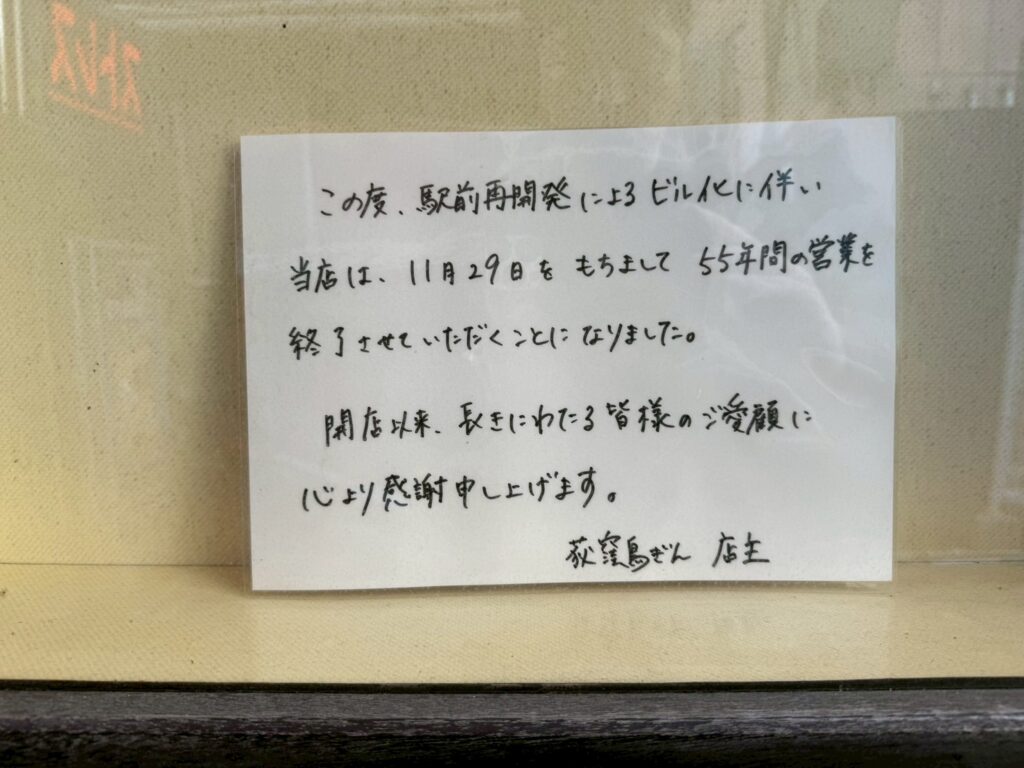 この度、駅前再開発によるビル化に伴い
当店は、11月29日をもちまして55年間の営業を
終了させていただくことになりました。
開店以来、長きにわたる皆様のご愛顧に
心より感謝申し上げます。
荻窪鳥ぎん 店主